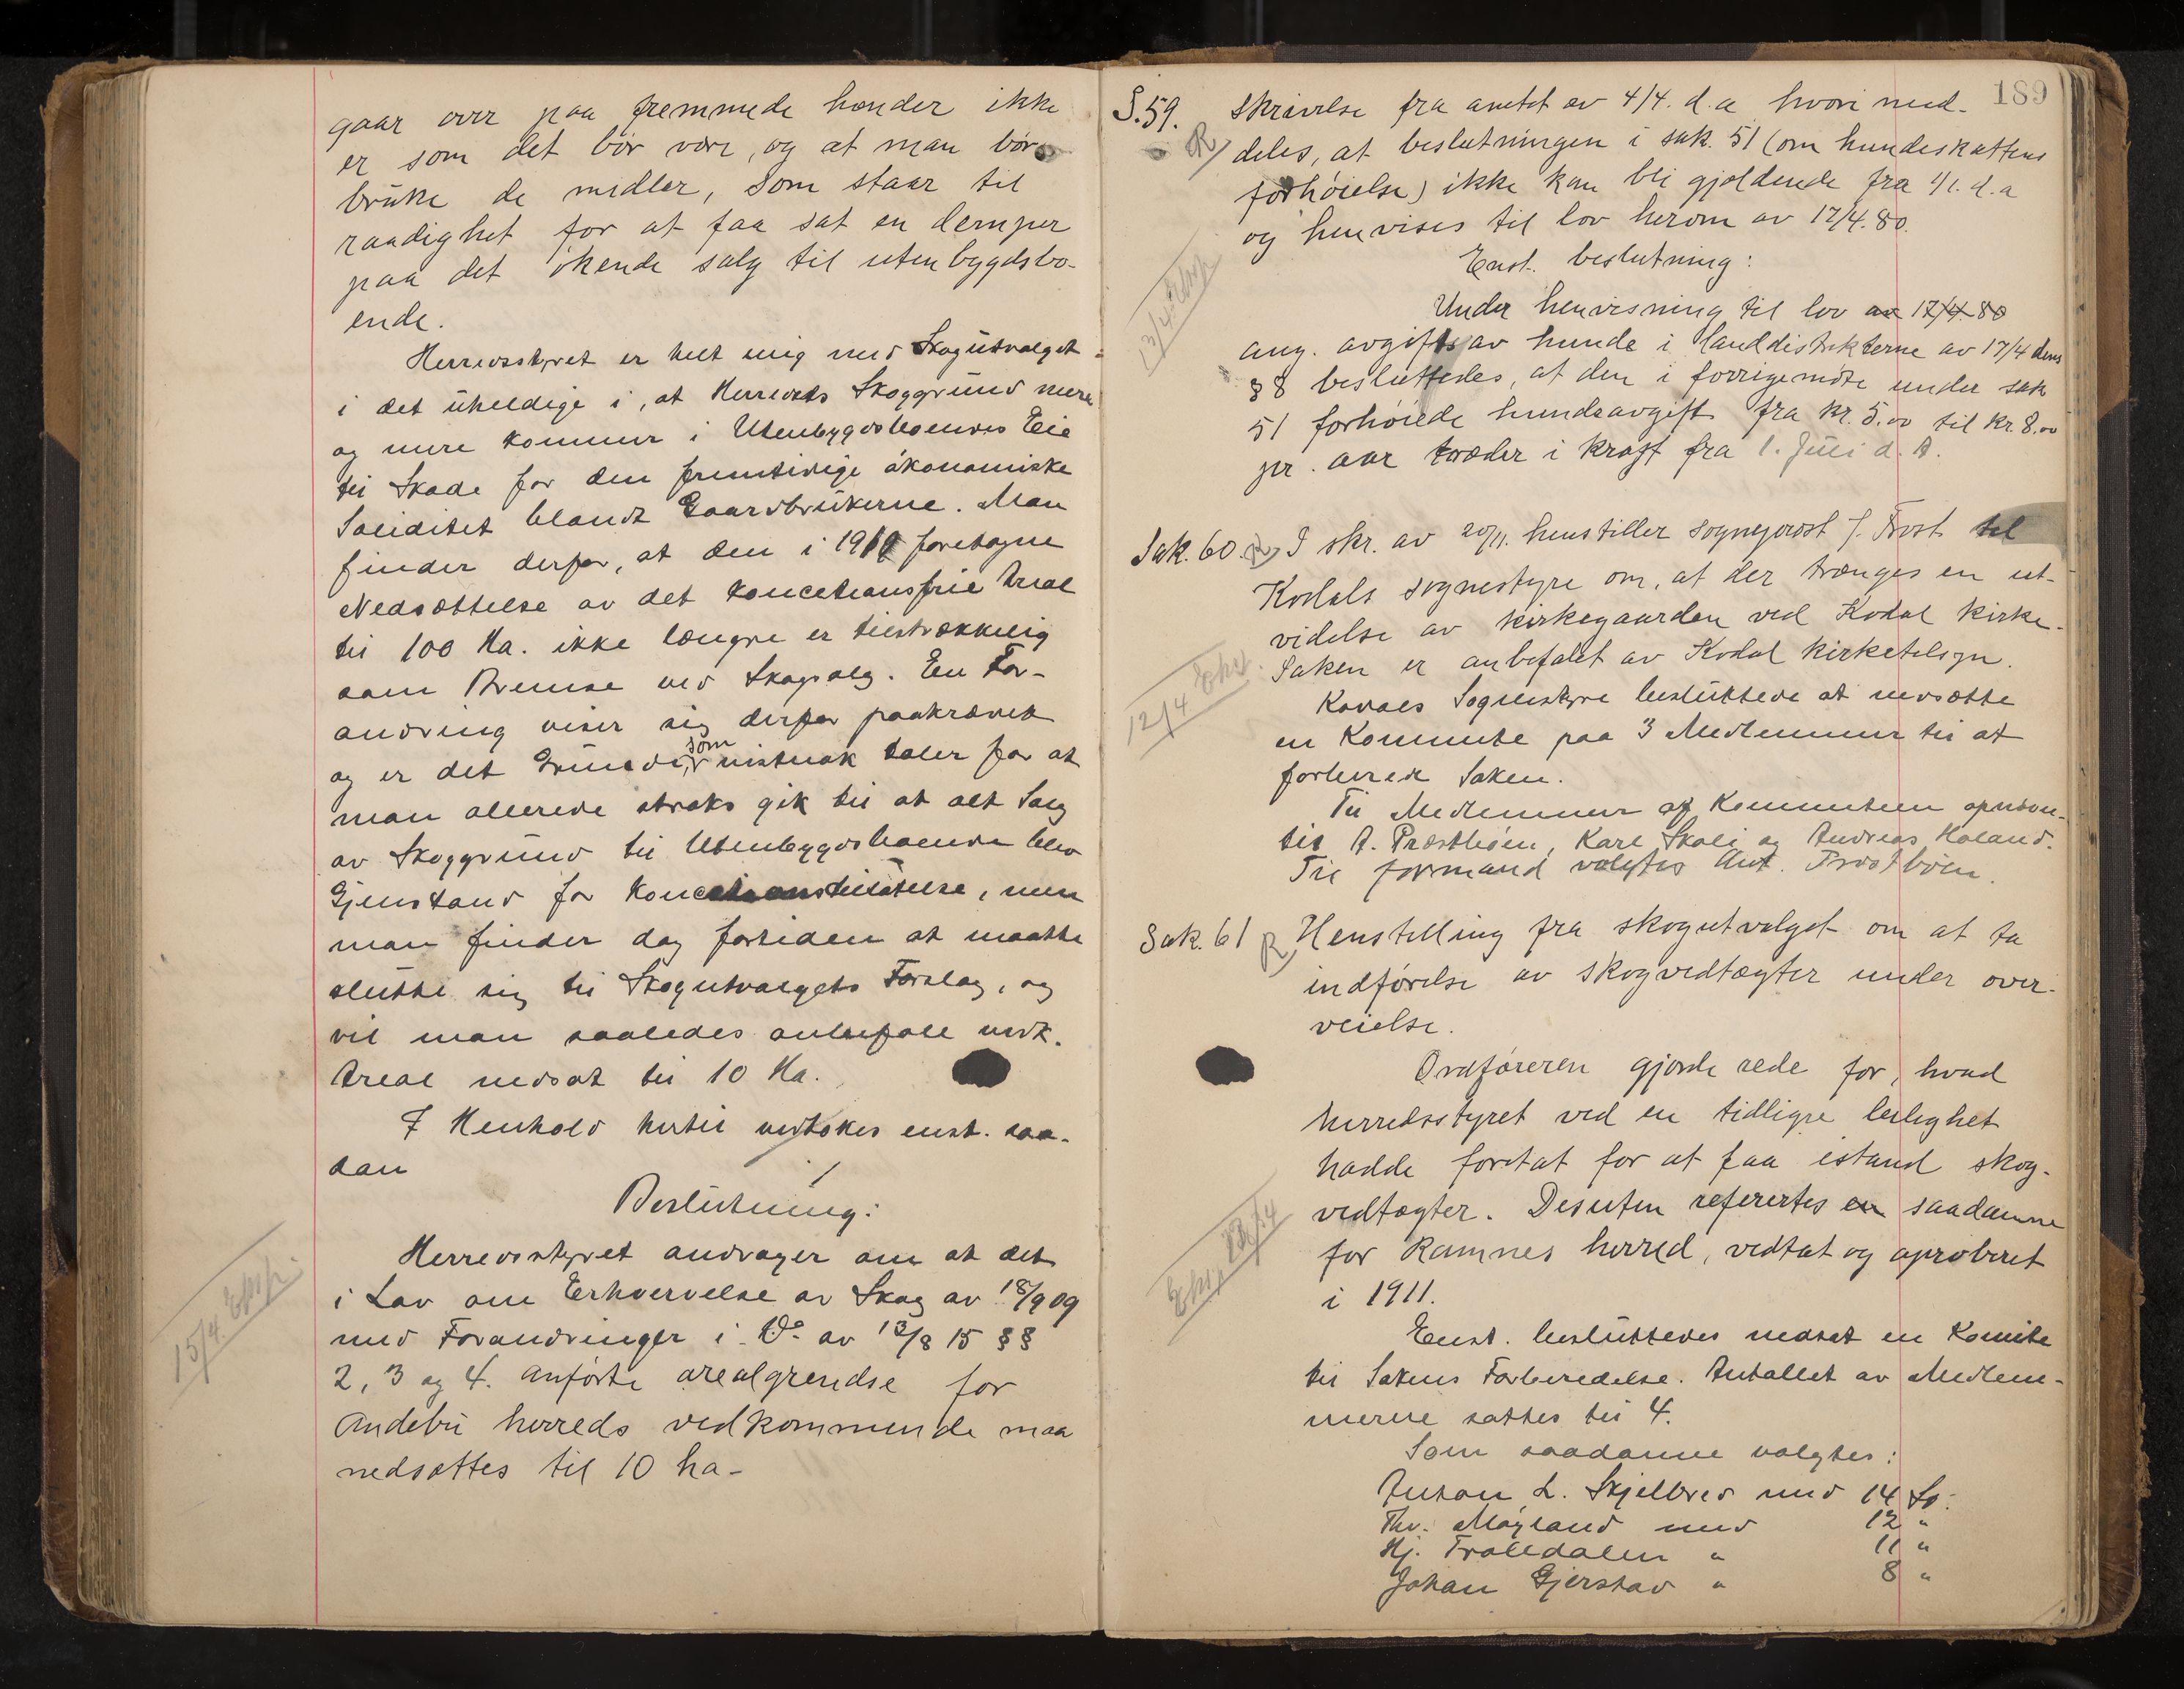 gaar over paa fremmede hænder ikke
er som det bör være, og at man bör
bruke de midler, som staar til
raadighet for at faa sat en demper
paa det økende salg til utenbygdsbo-
ende.
Herredsstyret er helt enig med Skogutvalget
i det uheldige i, at Herredets Skoggrund mere
og mere kommer i Utenbygdsboendes Eie
til Skade for den fremtidige økonomiske
Soliditet blandt Gaardbrukerne. Man
finder derfor, at den i foretagne
Nedsættelse av det koncetionsfrie Areal
til 100 Ha. ikke længre er tilstrækkelig
som Bremse ved Skogsalg. En For-
andring viser sig derfor paakrævet
og er det Grunde, som nistnok taler for at
man allerede straks gik til at alt Salg
av Skoggrund til Utenbygdsboende blev
Gjenstand for Koncetionstilatelse, men
man finder dog fortiden at maatte
slutte sig til Skogutvalgets Forslag, og
vil man saaledes anbefale nevk.
Areal nedsat til 10 Ha.
I Henhold hertil vedtokes enst. saa-
dan
Beslutning:
Herredsstyret andrager om at det
i Lov om Erhvervelse av Skog av 18/9 09
med Forandringer i Do av 13/8 15 §§
2, 3 og 4. anførte arealgrendse for
Andebu herreds vedkommende maa
nedsættes til 10 ha-
15/4. Exp.
189
S. 59. R skrivelse fra amtet av 4/4. d.a hvori med-
deles, at beslutningen i sak. 51 (om hundeskattens
forhøielse) ikke kan bli gjældende fra 1/1. d.a
og henvises til lov herom av 17/4. 80.
13/4. Exp.
Enst. beslutning:
Under henvisning til lov av 17/4. 80
ang. avgift av hunde i landdistrikterne av 17/4 dens
§ 8 besluttedes, at den i forrige møte under sak
51 forhøiede hundeavgift fra kr. 5.00 til kr. 8.00
pr. aar træder i kraft fra 1. Juli d. A.
Sak. 60. R I skr. av 20/11. henstiller sogneprost J. Frost til
Kodals sognestyre om, at der trænges en ut-
videlse av kirkegaarden ved Kodal kirke.
Saken er anbefalet av Kodal kirketilsyn.
12/4 Exp.
Kodals Sognestyre besluttede at nedsætte
en Kommite paa 3 Medlemmer til at
forberede Saken.
Til Medlemmer af Kommiteen opnævn-
tes A. Præstbøen, Karl Skoli og Andreas Holand.
Til formand valgtes Ant. Præstbøen.
Sak. 61 R Henstilling fra skogutvalget om at ta
indførelse av skogvedtægter under over-
veielse.
Ordføreren gjorde rede for, hvad
herredsstyret ved en tidligre leilighet
hadde foretat for at faa istand skog-
vedtægter. Desuten referertes en saadanne
for Ramnes herred, vedtat og aproberet
i 1911.
Exp. 13/4
Enst. besluttedes nedsat en Komite
til Sakens Forberedelse. Antallet av Medlem-
merne sattes til 4.
Som saadanne valgtes:
Anton L. Skjelbred med 14 St.
Thv. Møyland med 12 "
Hj. Trolldalen " 11 "
Johan Gjerstad " 8 "